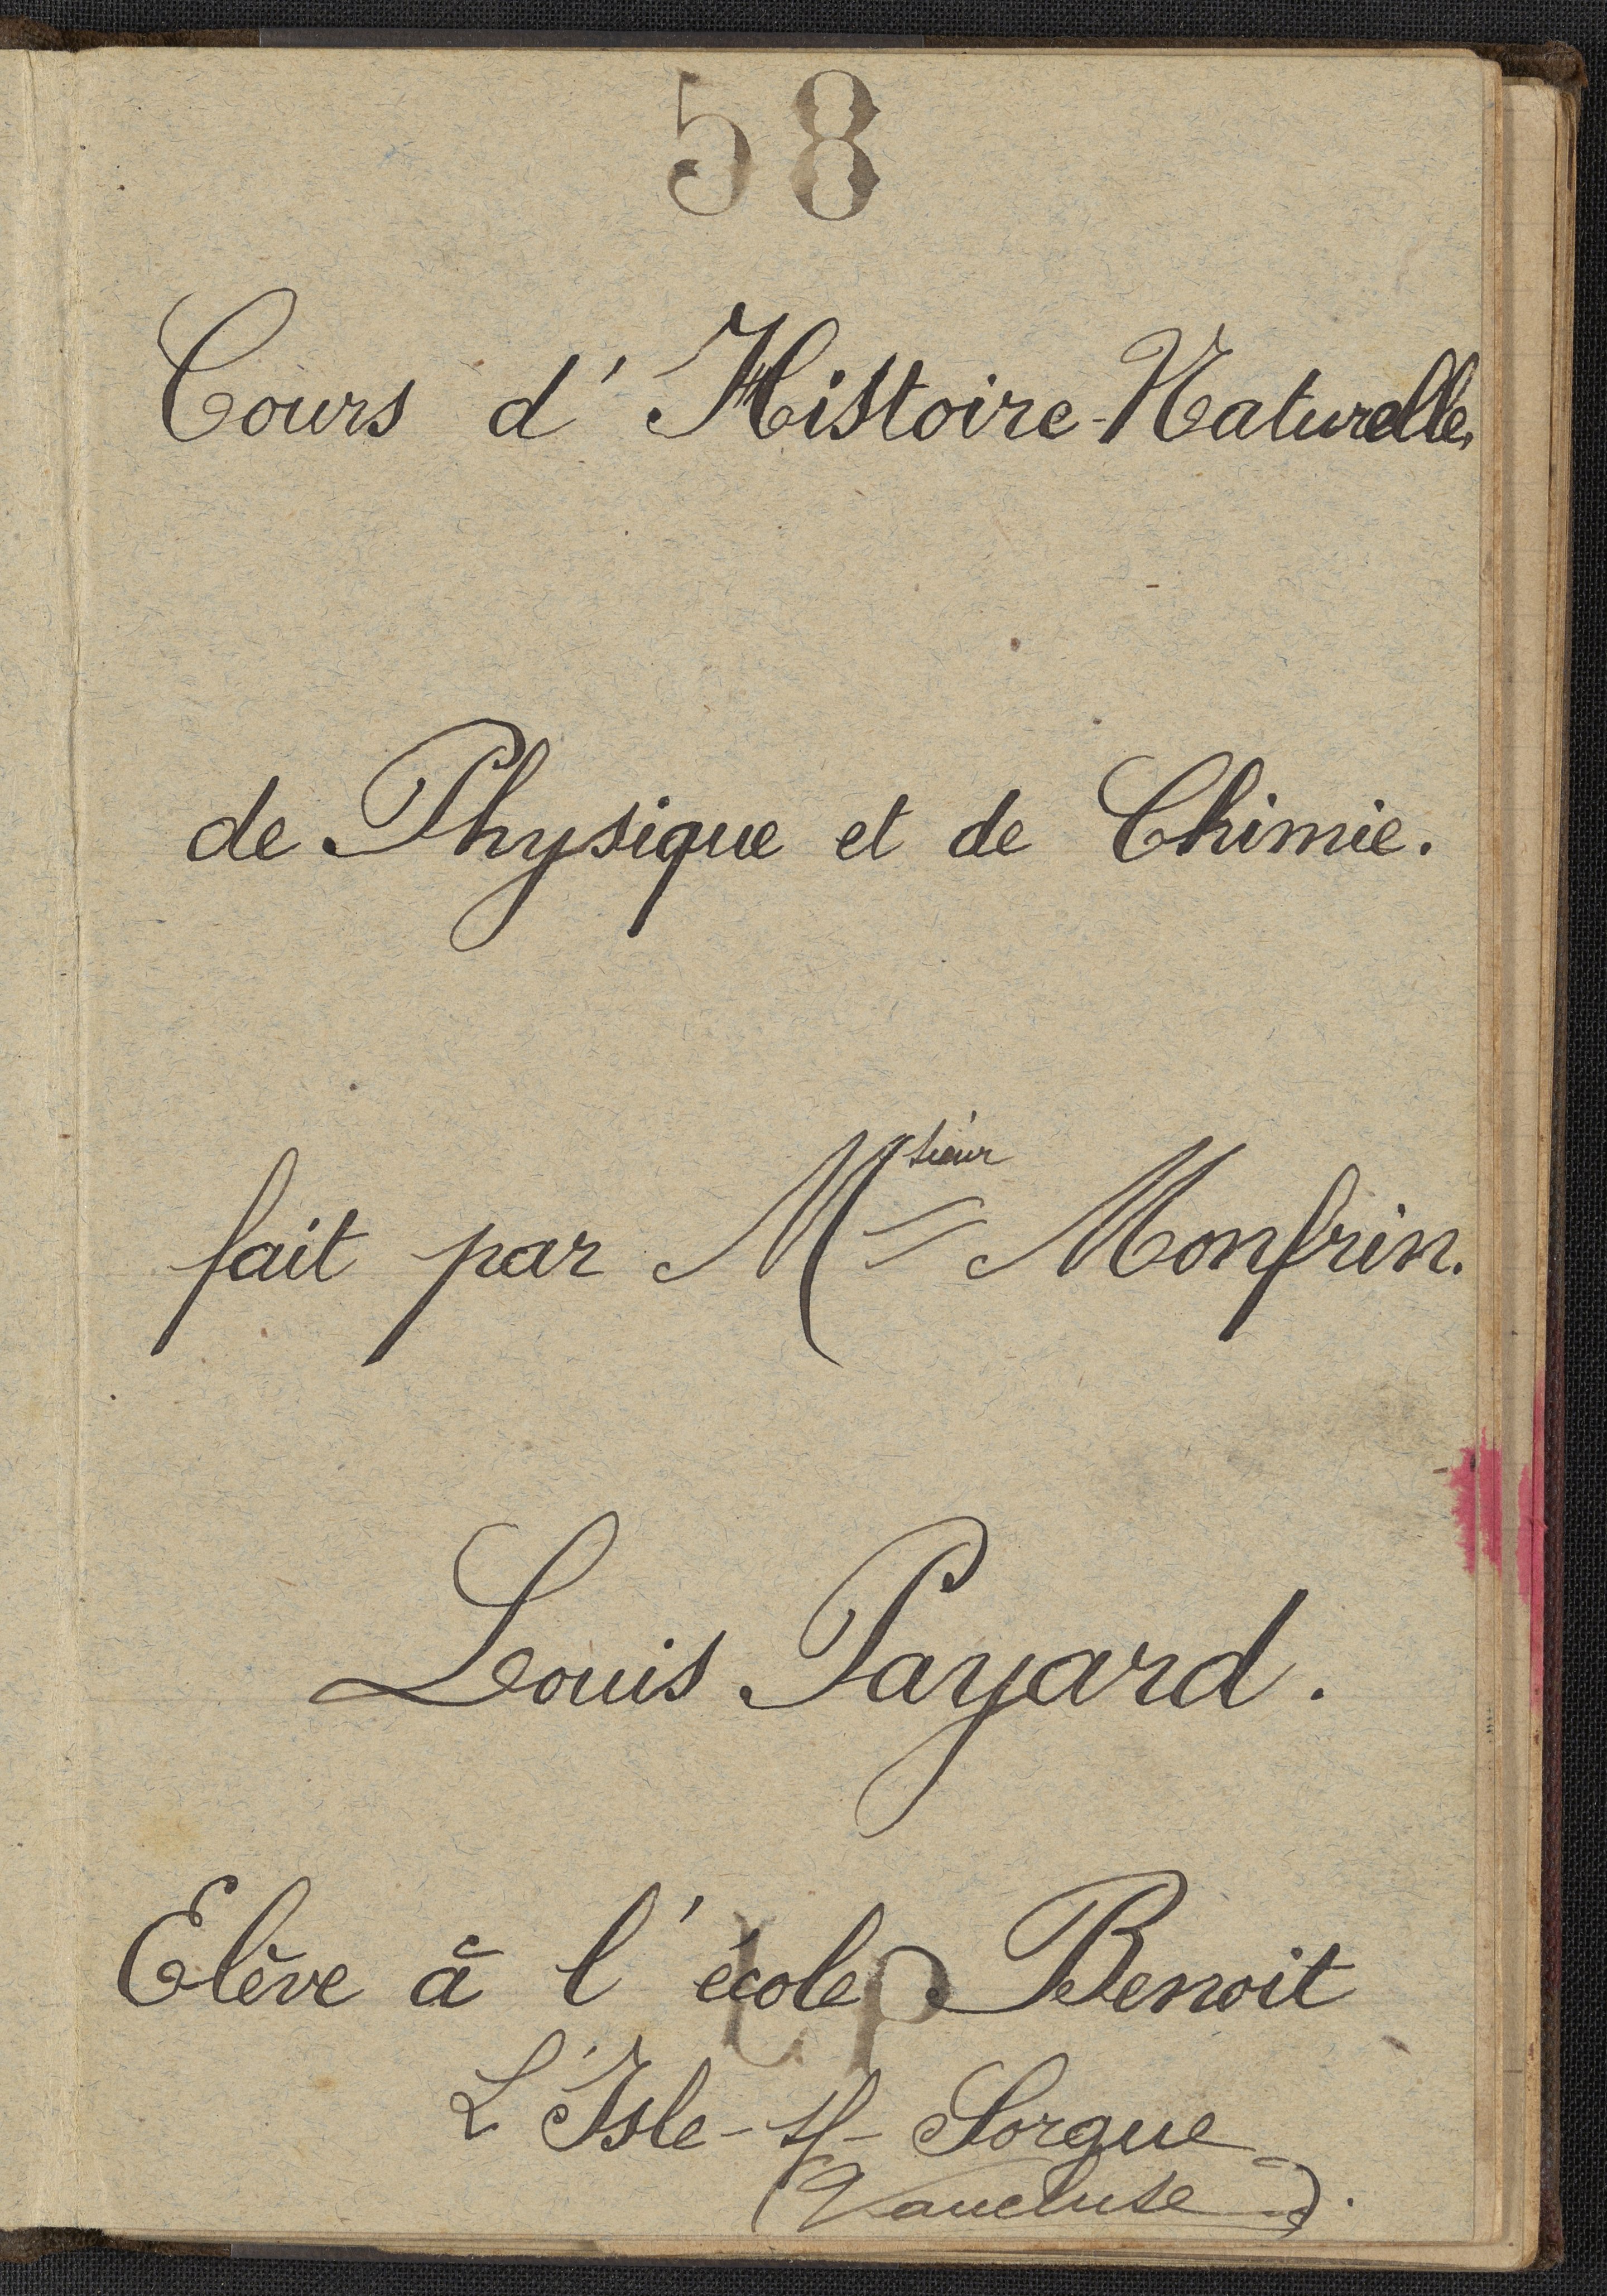 58
Cours d'Histoire-Naturelle,
de Physique et de Chimie.
fait par Msieur Monfrin.
Louis Payard.
Elève à l'école Benoit
LP
L'Isle-s/-Sorgue
(Vaucluse).